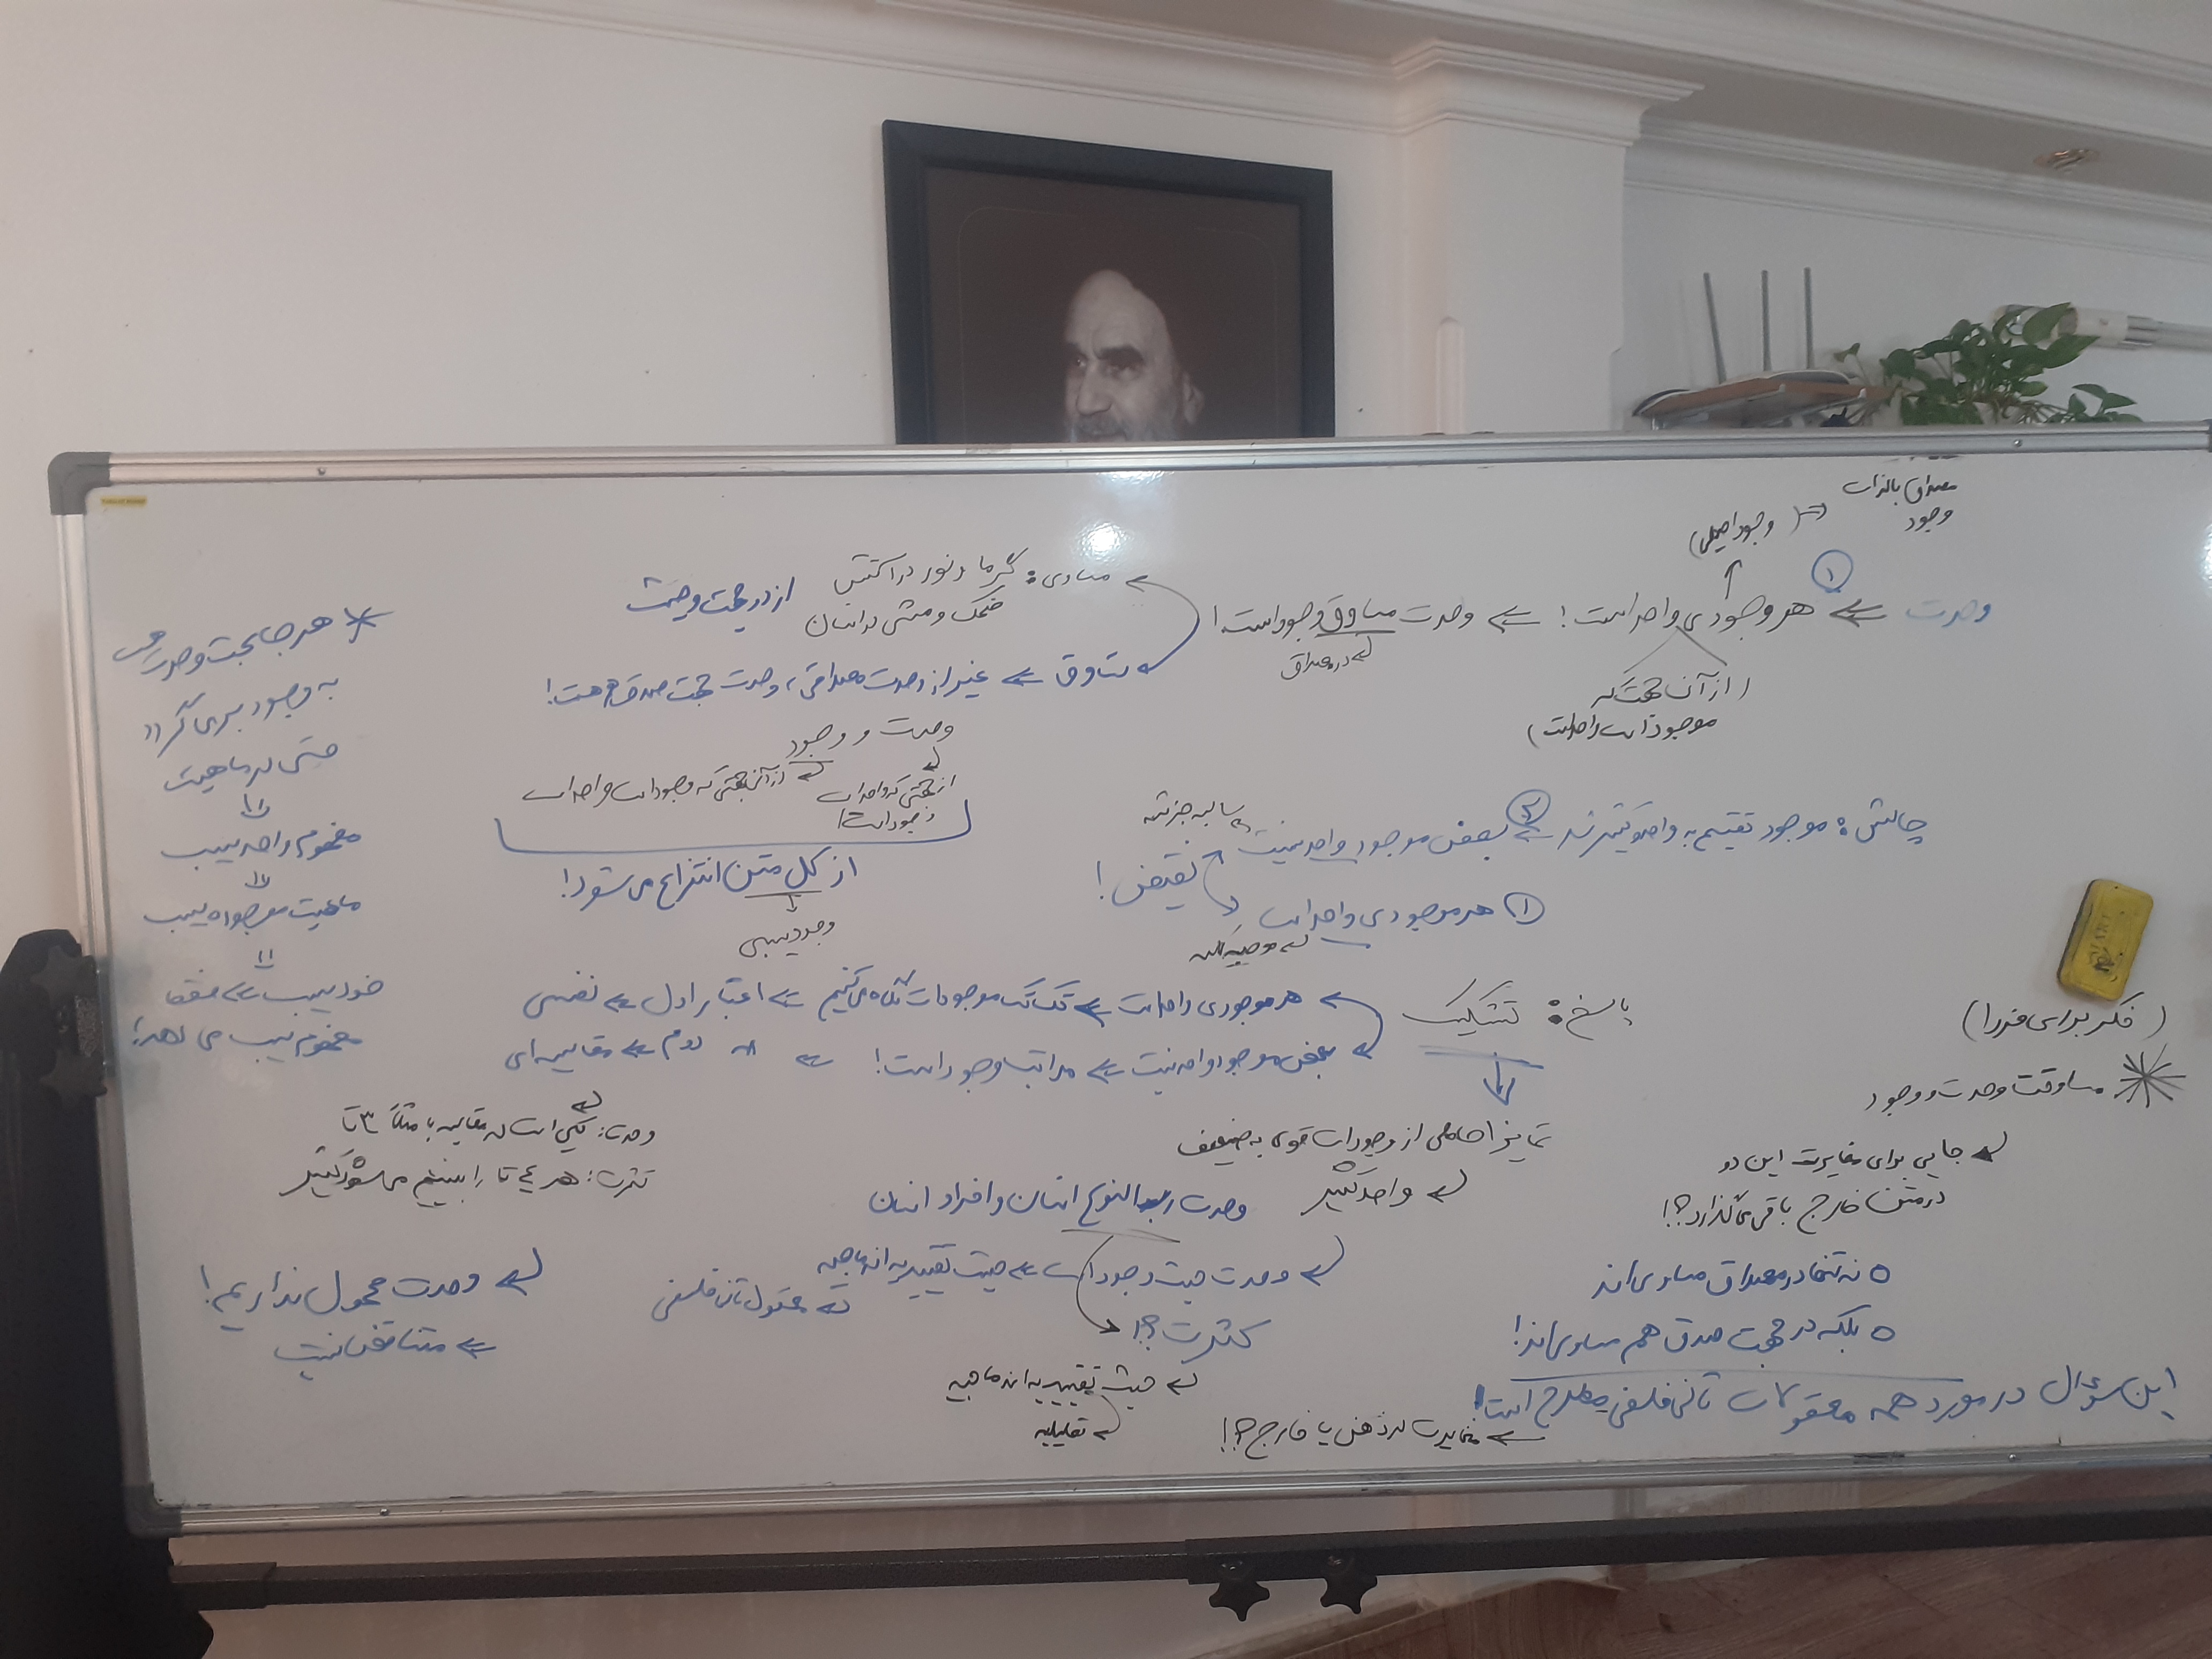 مصداق بالذات
وجود
(وجود اصیل)
وحدت ⇐ ① هر وجودی واحد است! ⇐ وحدت مساوق وجود است!
در مصداق
(از آن جهت که
موجود است واحد است)
مساوی: گرما و نور در آتش
ضحک و مشی در انسان
از دو جهت و حیث
تساوق ⇐ غیر از وحدت مصداقی، وحدت جهت صدق هم هست!
وحدت و وجود
از جهتی که واحد است
وجود است!
از آن جهتی که وجود است واحد است
از کل متن انتزاع می‌شود!
چالش: موجود تقسیم به واحد و کثیر شد ⇐ ② بعض موجود واحد نیست
سالبه جزئیه
نقیض!
① هر موجودی واحد است
موجبه کلیه
پاسخ: تشکیک
هر موجودی واحد است ⇐ تک تک موجودات نگاه می‌کنیم ⇐ اعتبار اول ⇐ نفسی
بعض موجود واحد نیست ⇐ مراتب وجود است! ⇐ " دوم ⇐ مقایسه‌ای
وحدت: یکی است در مقایسه با مثلاً ۳ تا
کثرت: هر ۳ تا را ببینیم می‌شود کثیر
تمایز از وجودات قوی به ضعیف
واحد کثیر
وحدت رب النوع انسان و افراد انسان
وحدت حیث وجود است ⇐ حیث تقییدیه اندماجیه
معقول ثانی فلسفی
کثرت؟!
حیث تقییدیه اندماجیه
تعلیلیه
وحدت محمول نداریم!
⇐ متناقض نیست
* هر جا بحث وحدت
به وجود برمی‌گردد
حتی در ماهیت
مفهوم واحد سیب
ماهیت موجوده سیب
خود سیب ⇐ فقط
مفهوم سیب می‌دهد!
(فکر برای فردا)
* مساوقت وحدت و وجود
جایی برای مغایرت این دو
در متن خارج باقی می‌گذارد؟!
○ نه تنها در مصداق مساوی‌اند
○ بلکه در جهت صدق هم مساوی‌اند!
این سؤال در مورد همه معقولات ثانی فلسفی مطرح است!
⇐ مغایرت در ذهن یا خارج؟!